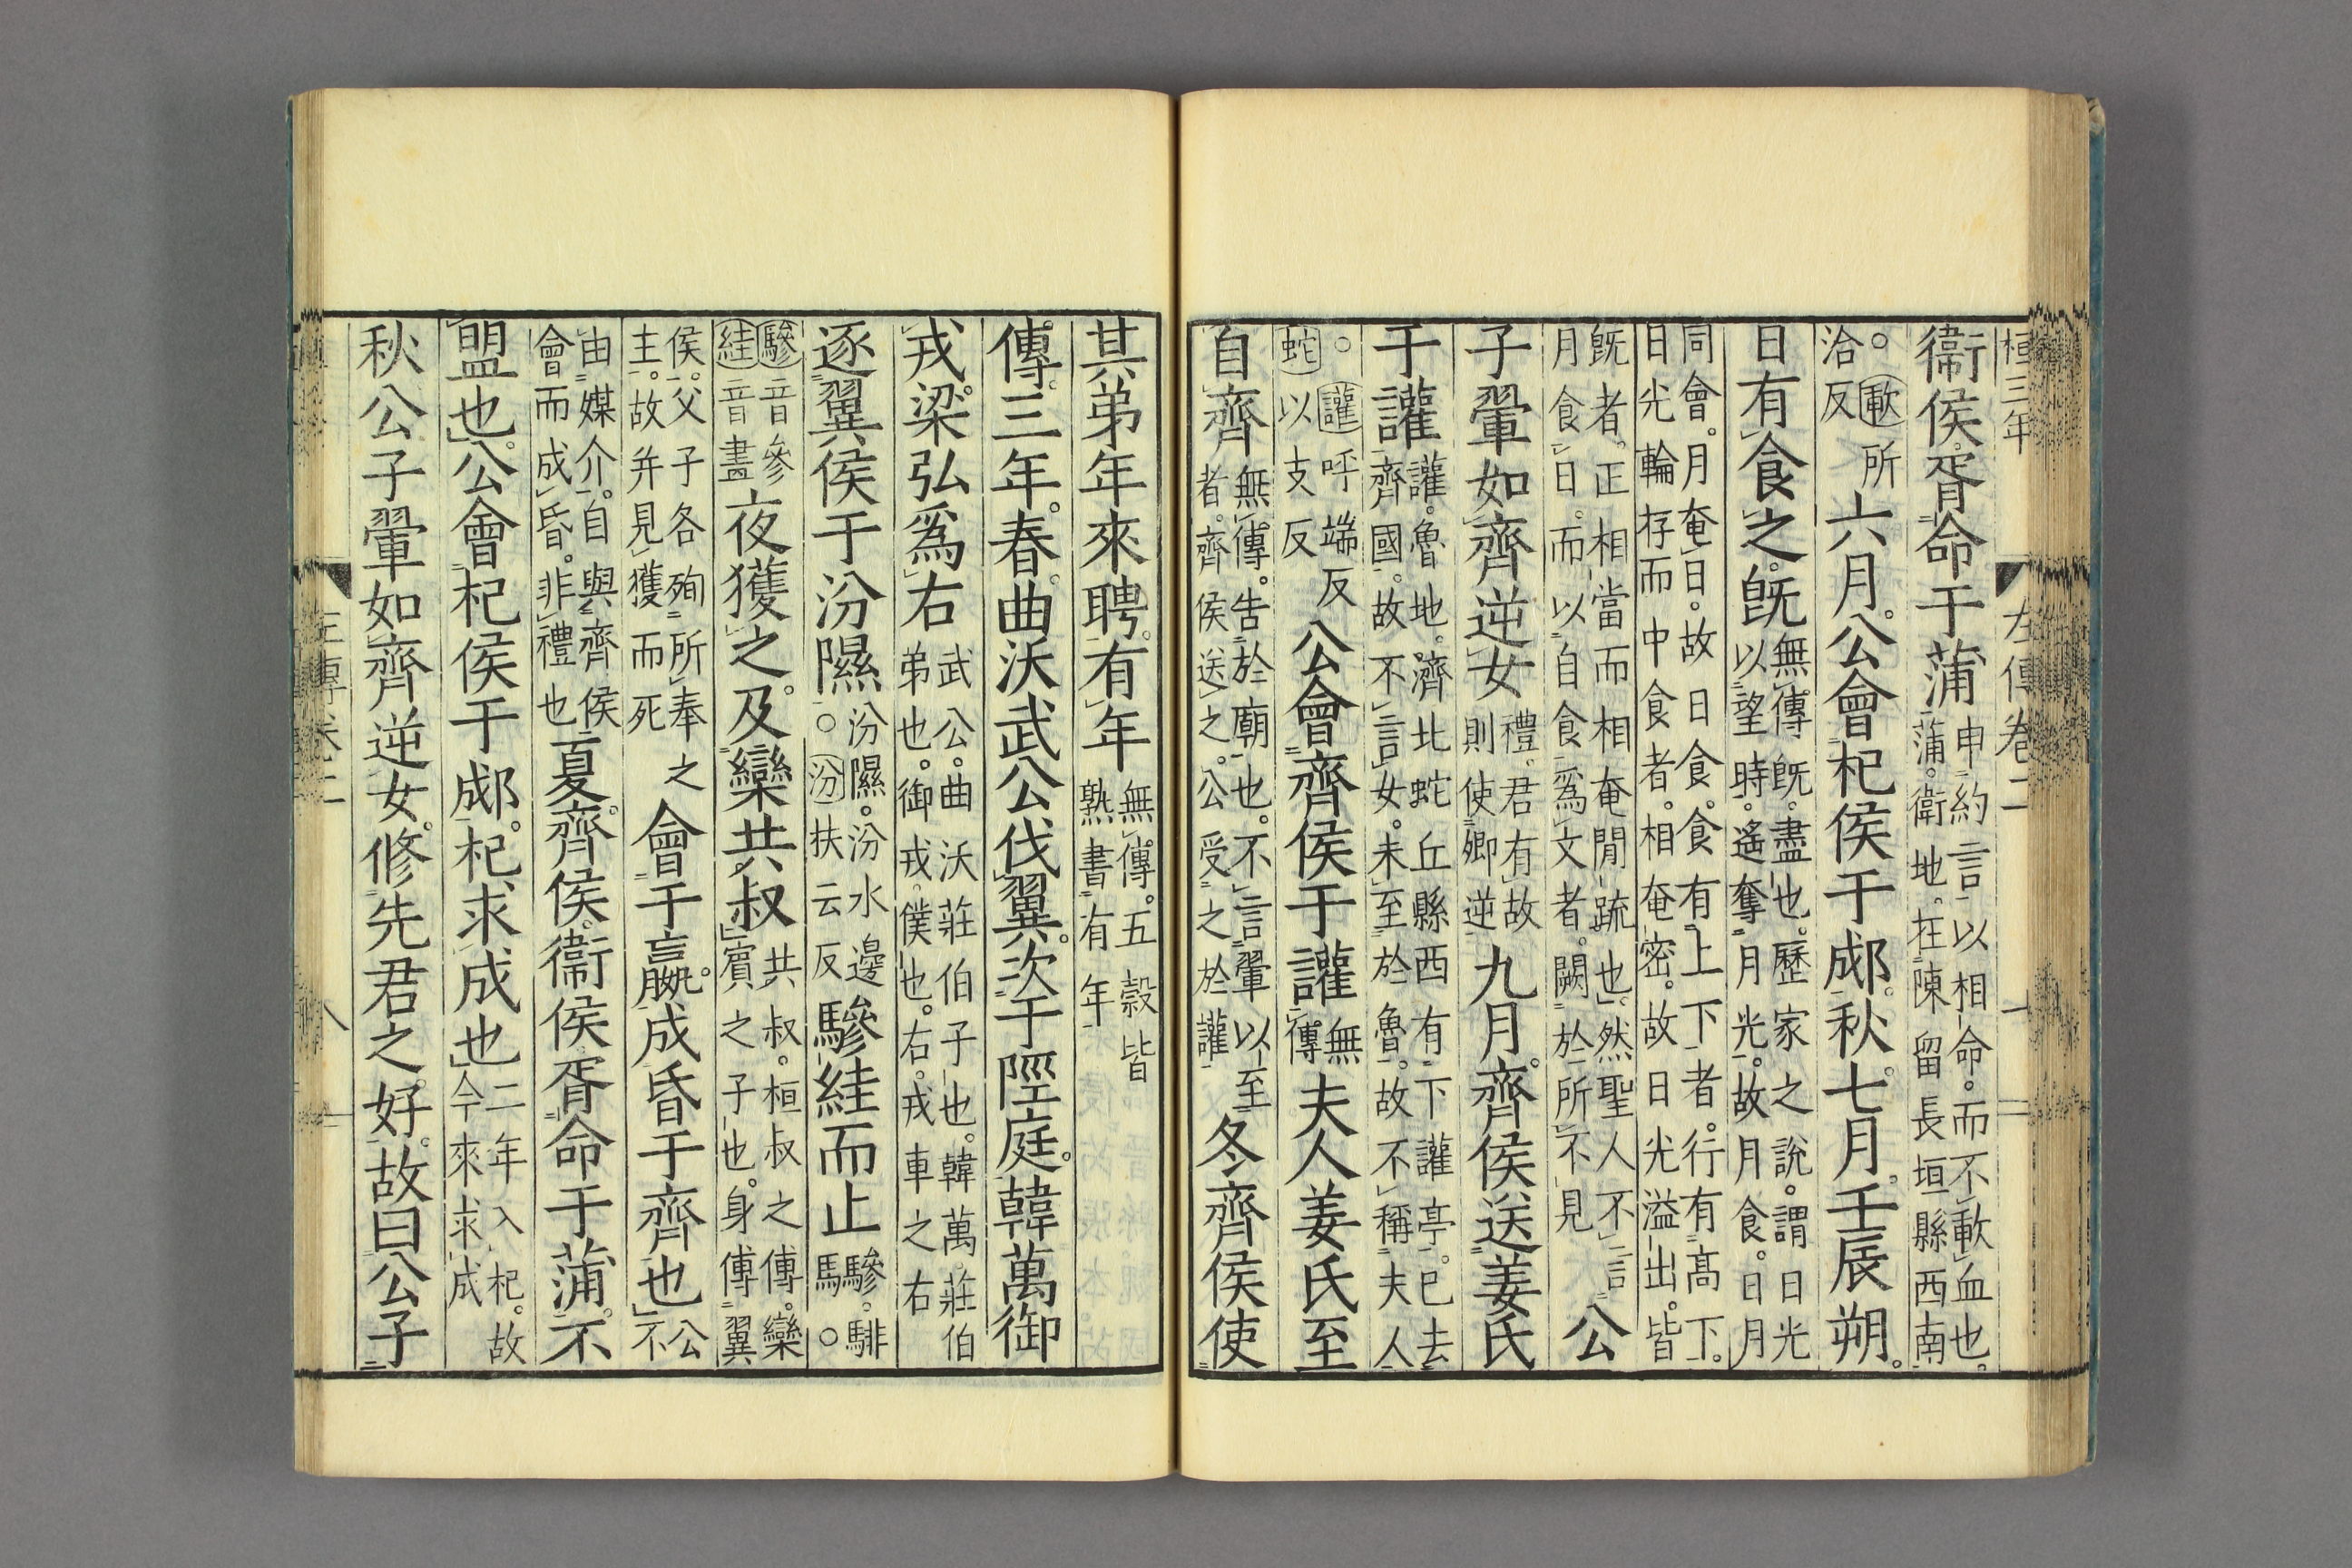 桓三年　左傳卷二
衞侯胥命于蒲申約言以相命。而不歃血也。蒲。衛地。在陳留長垣縣西南
。歃所洽反六月。公會杞侯于郕。秋。七月。壬辰朔。
日有食之。既無傳既。盡也。歷家之說。謂日光以望時。遙奪月光。故月食。日月
同會。月奄日。故日食。食有上下者。行有高下。日光輪存而中食者。相奄密。故日光溢出。皆
既者。正相當而相奄閒疏也。然聖人不言月食日。而以自食爲文者。闕於所不見公
子翬如齊逆女禮。君有故則使卿逆九月。齊侯送姜氏
于讙讙。魯地。濟北蛇丘縣西有下讙亭。已去齊國。故不言女。未至於魯。故不稱夫人
。讙呼端反蛇以支反公會齊侯于讙無傳夫人姜氏至
自齊無傳。告於廟也。不言翬以至者。齊侯送之。公受之於讙冬。齊侯使
其弟年來聘。有年無傳。五穀皆熟書有年
傳。三年。春。曲沃武公伐翼。次于陘庭。韓萬御
戎。梁弘爲右武公。曲沃莊伯子也。韓萬。莊伯弟也。御戎。僕也。右。戎車之右
逐翼侯于汾隰汾隰。汾水邊。○汾扶云反驂絓而止驂。騑馬○
驂音參絓音畫夜獲之。及欒共叔共叔。桓叔之傅。欒賓之子也。身傅翼
侯。父子各殉所奉之主。故并見獲而死會于嬴。成昏于齊也公不
由媒介。自與齊侯會而成昏。非禮也夏。齊侯。衞侯胥命于蒲。不
盟也。公會杞侯于郕。杞求成也二年入杞。故今來求成
秋公子翬如齊逆女。修先君之好。故曰公子
左傳卷二　八